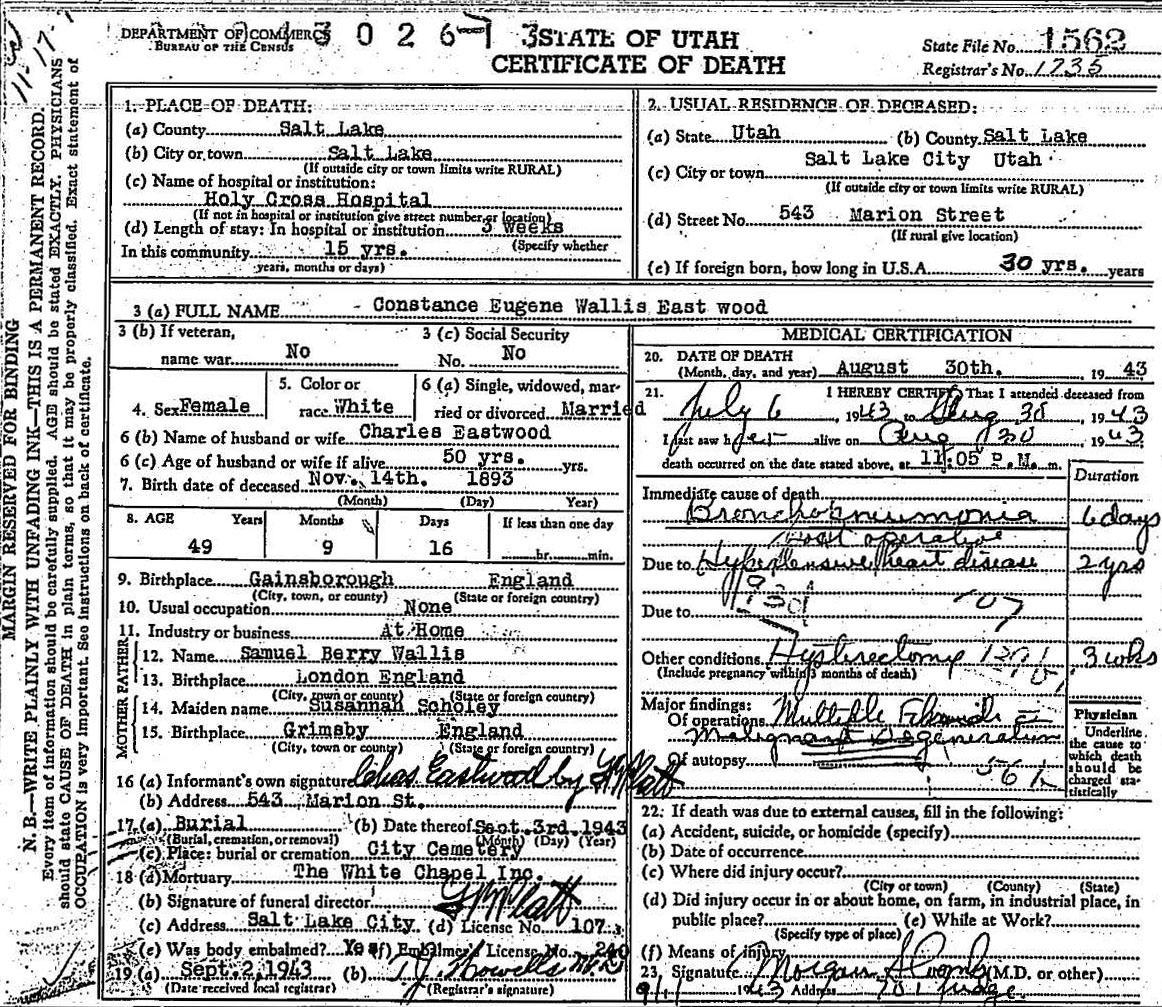 DEPARTMENT OF COMMERCE
BUREAU OF THE CENSUS
STATE OF UTAH
CERTIFICATE OF DEATH
State File No. 1562
Registrar's No. 1735
11-17
MARGIN RESERVED FOR BINDING
N. B.—WRITE PLAINLY WITH UNFADING INK—THIS IS A PERMANENT RECORD.
Every item of information should be carefully supplied. AGE should be stated EXACTLY. PHYSICIANS
should state CAUSE OF DEATH in plain terms, so that it may be properly classified. Exact statement of
OCCUPATION is very important. See instructions on back of certificate.
1. PLACE OF DEATH:
(a) County Salt Lake
(b) City or town Salt Lake
(If outside city or town limits write RURAL)
(c) Name of hospital or institution:
Holy Cross Hospital
(If not in hospital or institution give street number or location)
(d) Length of stay: In hospital or institution 3 weeks
(Specify whether
In this community 15 yrs.
years, months or days)
2. USUAL RESIDENCE OF DECEASED:
(a) State Utah (b) County Salt Lake
Salt Lake City Utah
(c) City or town
(If outside city or town limits write RURAL)
(d) Street No. 543 Marion Street
(If rural give location)
(e) If foreign born, how long in U.S.A. 30 yrs. years
3 (a) FULL NAME Constance Eugene Wallis East wood
3 (b) If veteran,
name war No
3 (c) Social Security
No. No
4. Sex Female
5. Color or
race White
6 (a) Single, widowed, mar-
ried or divorced Married
6 (b) Name of husband or wife Charles Eastwood
6 (c) Age of husband or wife if alive 50 yrs. yrs.
7. Birth date of deceased Nov. 14th. 1893
(Month) (Day) Year)
8. AGE Years Months Days If less than one day
49 9 16 hr. min.
9. Birthplace Gainsborough England
(City, town, or county) (State or foreign country)
10. Usual occupation None
11. Industry or business At Home
FATHER
12. Name Samuel Berry Wallis
13. Birthplace London England
(City, town or county) (State or foreign country)
MOTHER
14. Maiden name Susannah Scholey
15. Birthplace Grimsby England
(City, town or county) (State or foreign country)
16 (a) Informant's own signature Chas. Eastwood by
(b) Address 543 Marion St.
17. (a) Burial (b) Date thereof Sept. 3rd. 1943
(Burial, cremation, or removal) (Month) (Day) (Year)
(c) Place: burial or cremation City Cemetery
18 (a) Mortuary The White Chapel Inc.
(b) Signature of funeral director
(c) Address Salt Lake City. (d) License No. 107
(e) Was body embalmed? Yes (f) Embalmer's License No. 240
19 (a) Sept. 2, 1943 (b) T. J. Howells M.D.
(Date received local registrar) (Registrar's signature)
MEDICAL CERTIFICATION
20. DATE OF DEATH
(Month, day, and year) August 30th. 19 43
21. I HEREBY CERTIFY That I attended deceased from
July 6 1943 to Aug 30 1943
I last saw her alive on Aug 30 1943
death occurred on the date stated above, at 11:05 P.M. m.
Duration
Immediate cause of death
Bronchopneumonia 6 days
Post operative
Due to Hypertensive heart disease 2 yrs
93d
107
Due to
Other conditions Hysterectomy 3 wks
(Include pregnancy within 3 months of death)
Major findings:
Of operations Multiple Fibroids
Malignant Degeneration
Of autopsy
56
Physician
Underline
the cause to
which death
should be
charged sta-
tistically
22. If death was due to external causes, fill in the following:
(a) Accident, suicide, or homicide (specify)
(b) Date of occurrence
(c) Where did injury occur?
(City or town) (County) (State)
(d) Did injury occur in or about home, on farm, in industrial place, in
public place? (e) While at Work?
(Specify type of place)
(f) Means of injury
23. Signature (M.D. or other)
9/1 1943 Address 701 Judge